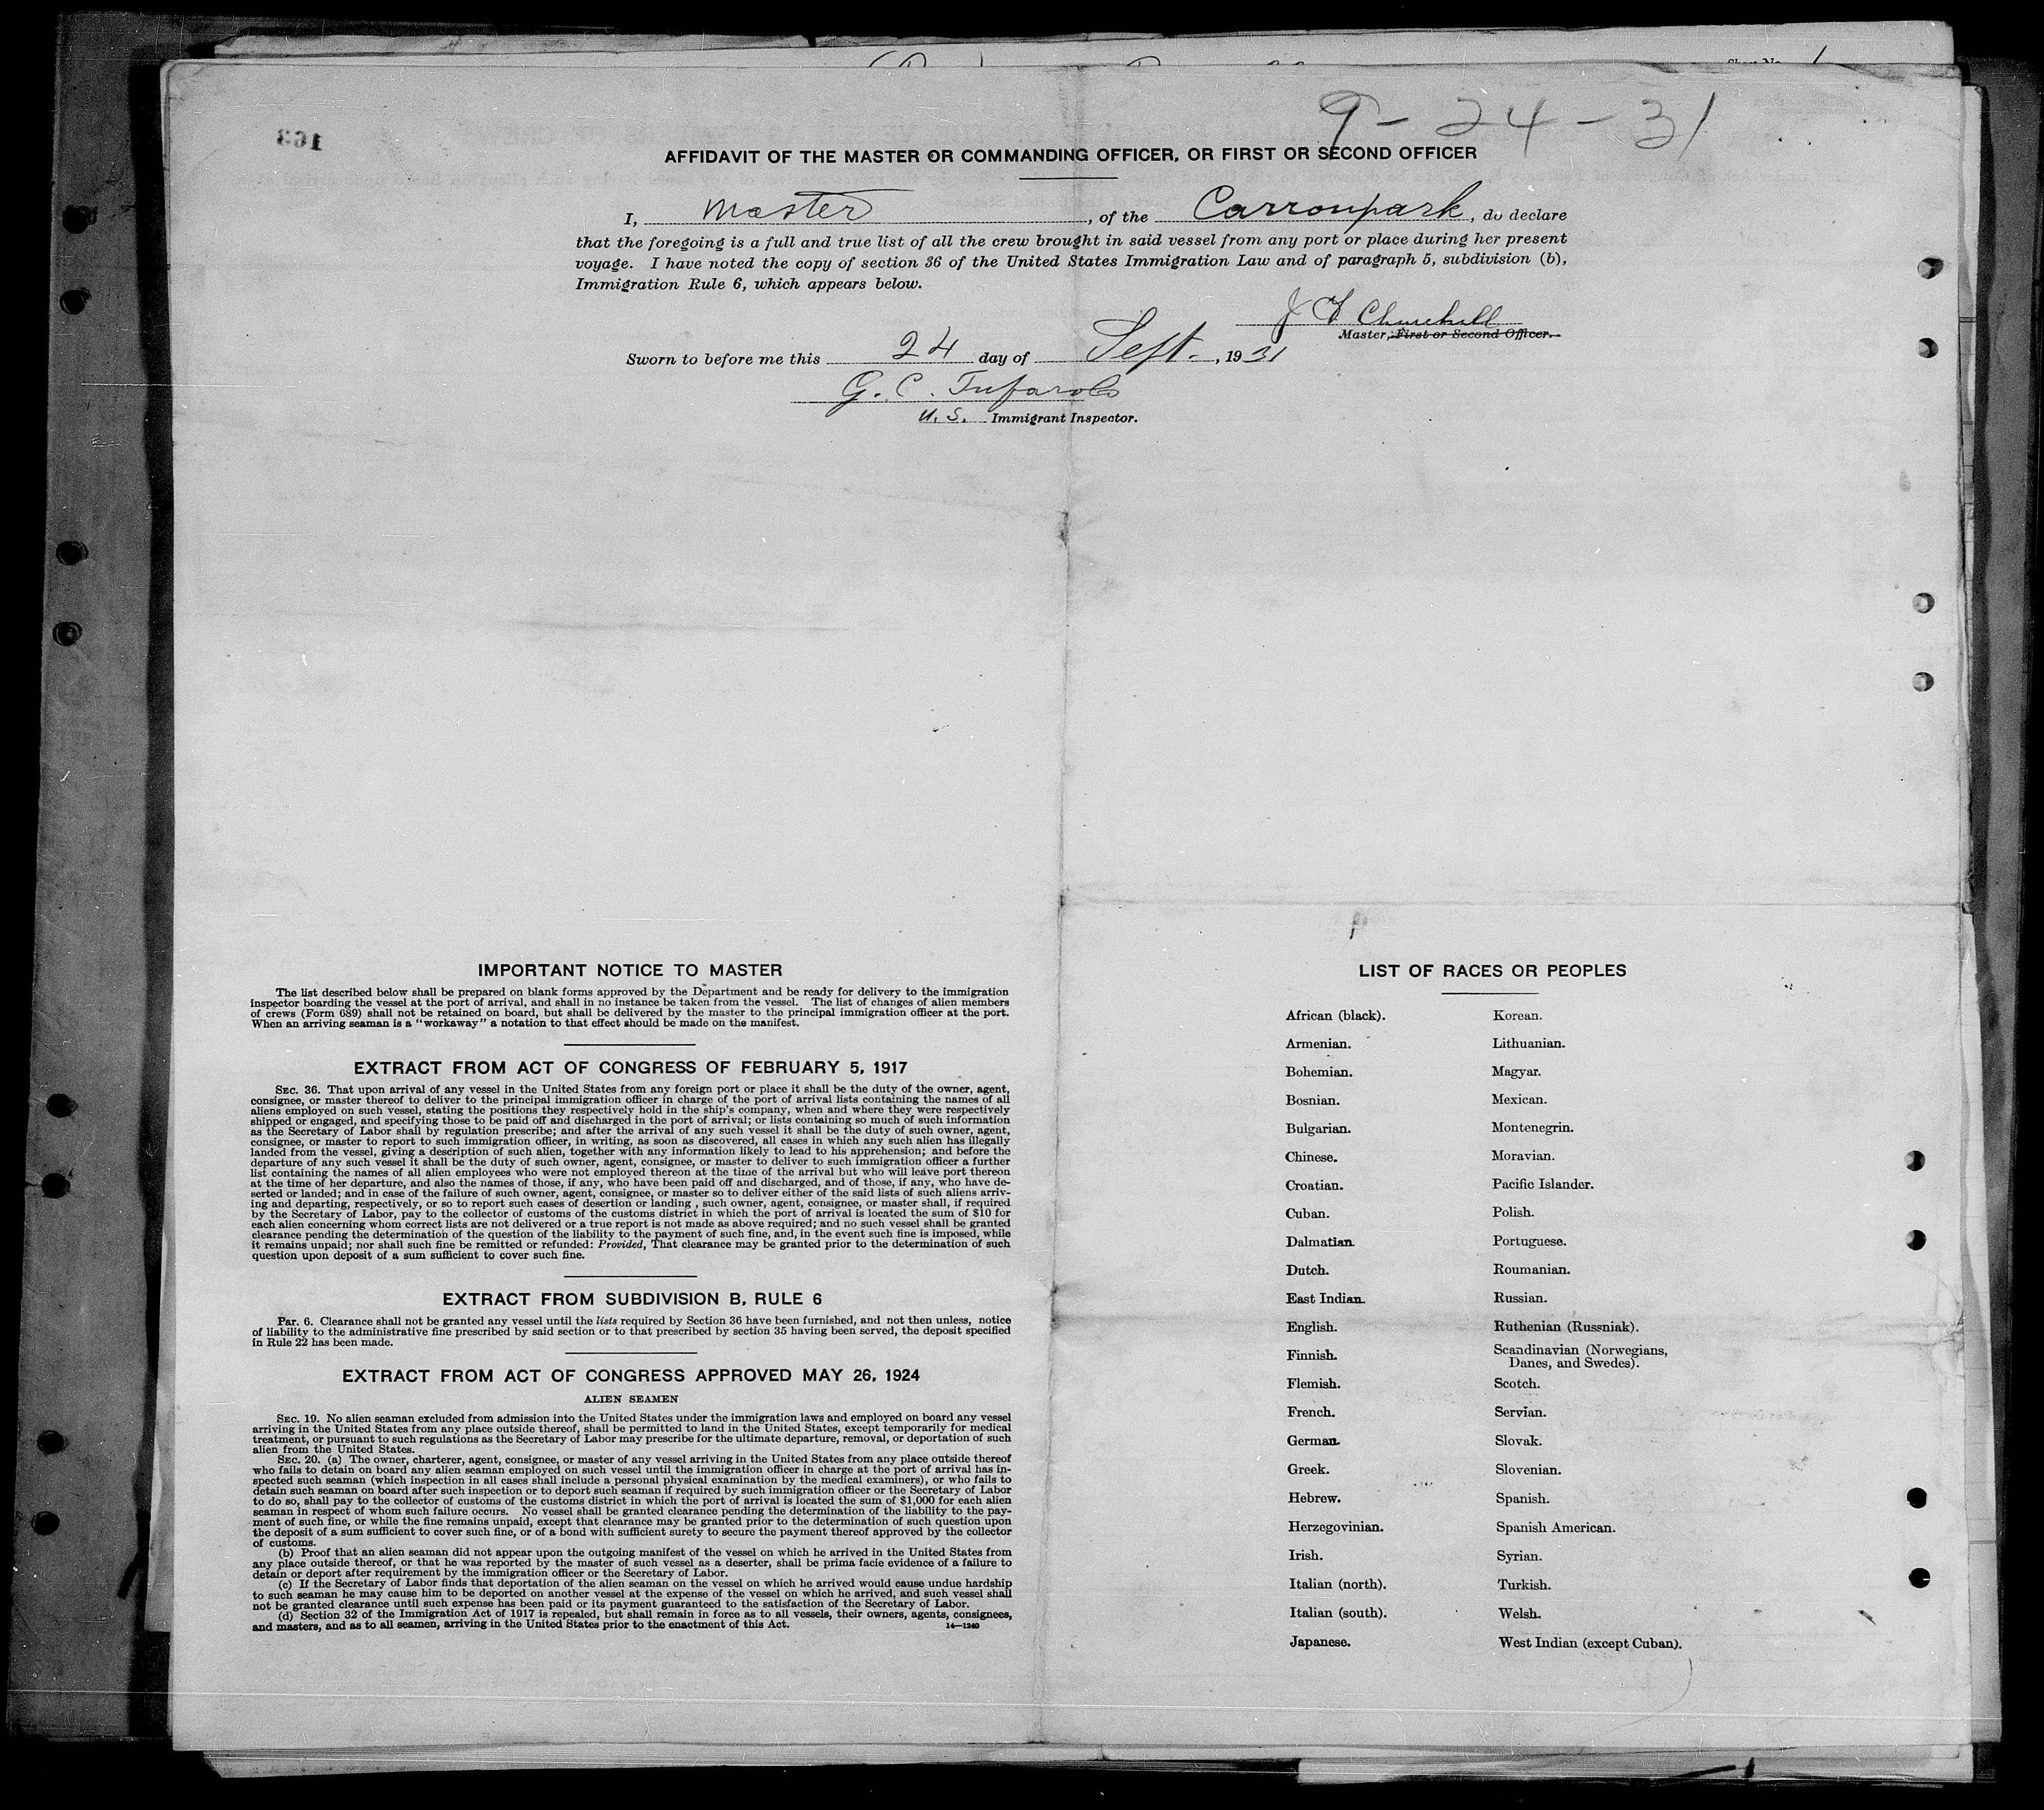 9-24-31
163
AFFIDAVIT OF THE MASTER OR COMMANDING OFFICER, OR FIRST OR SECOND OFFICER
I, Master, of the Carronpark, do declare
that the foregoing is a full and true list of all the crew brought in said vessel from any port or place during her present
voyage. I have noted the copy of section 36 of the United States Immigration Law and of paragraph 5, subdivision (b),
Immigration Rule 6, which appears below.
J Churchill
Master, First or Second Officer.
Sworn to before me this 24 day of Sept., 1931
G. C.
U.S. Immigrant Inspector.
IMPORTANT NOTICE TO MASTER
The list described below shall be prepared on blank forms approved by the Department and be ready for delivery to the immigration
inspector boarding the vessel at the port of arrival, and shall in no instance be taken from the vessel. The list of changes of alien members
of crews (Form 689) shall not be retained on board, but shall be delivered by the master to the principal immigration officer at the port.
When an arriving seaman is a "workaway" a notation to that effect should be made on the manifest.
EXTRACT FROM ACT OF CONGRESS OF FEBRUARY 5, 1917
SEC. 36. That upon arrival of any vessel in the United States from any foreign port or place it shall be the duty of the owner, agent,
consignee, or master thereof to deliver to the principal immigration officer in charge of the port of arrival lists containing the names of all
aliens employed on such vessel, stating the positions they respectively hold in the ship's company, when and where they were respectively
shipped or engaged, and specifying those to be paid off and discharged in the port of arrival; or lists containing so much of such information
as the Secretary of Labor shall by regulation prescribe; and after the arrival of any such vessel it shall be the duty of such owner, agent,
consignee, or master to report to such immigration officer, in writing, as soon as discovered, all cases in which any such alien has illegally
landed from the vessel, giving a description of such alien, together with any information likely to lead to his apprehension; and before the
departure of any such vessel it shall be the duty of such owner, agent, consignee, or master to deliver to such immigration officer a further
list containing the names of all alien employees who were not employed thereon at the time of the arrival but who will leave port thereon
at the time of her departure, and also the names of those, if any, who have been paid off and discharged, and of those, if any, who have de-
serted or landed; and in case of the failure of such owner, agent, consignee, or master so to deliver either of the said lists of such aliens arriv-
ing and departing, respectively, or so to report such cases of desertion or landing , such owner, agent, consignee, or master shall, if required
by the Secretary of Labor, pay to the collector of customs of the customs district in which the port of arrival is located the sum of $10 for
each alien concerning whom correct lists are not delivered or a true report is not made as above required; and no such vessel shall be granted
clearance pending the determination of the question of the liability to the payment of such fine, and, in the event such fine is imposed, while
it remains unpaid; nor shall such fine be remitted or refunded: Provided, That clearance may be granted prior to the determination of such
question upon deposit of a sum sufficient to cover such fine.
EXTRACT FROM SUBDIVISION B, RULE 6
Par. 6. Clearance shall not be granted any vessel until the lists required by Section 36 have been furnished, and not then unless, notice
of liability to the administrative fine prescribed by said section or to that prescribed by section 35 having been served, the deposit specified
in Rule 22 has been made.
EXTRACT FROM ACT OF CONGRESS APPROVED MAY 26, 1924
ALIEN SEAMEN
SEC. 19. No alien seaman excluded from admission into the United States under the immigration laws and employed on board any vessel
arriving in the United States from any place outside thereof, shall be permitted to land in the United States, except temporarily for medical
treatment, or pursuant to such regulations as the Secretary of Labor may prescribe for the ultimate departure, removal, or deportation of such
alien from the United States.
SEC. 20. (a) The owner, charterer, agent, consignee, or master of any vessel arriving in the United States from any place outside thereof
who fails to detain on board any alien seaman employed on such vessel until the immigration officer in charge at the port of arrival has in-
spected such seaman (which inspection in all cases shall include a personal physical examination by the medical examiners), or who fails to
detain such seaman on board after such inspection or to deport such seaman if required by such immigration officer or the Secretary of Labor
to do so, shall pay to the collector of customs of the customs district in which the port of arrival is located the sum of $1,000 for each alien
seaman in respect of whom such failure occurs. No vessel shall be granted clearance pending the determination of the liability to the pay-
ment of such fine, or while the fine remains unpaid, except that clearance may be granted prior to the determination of such question upon
the deposit of a sum sufficient to cover such fine, or of a bond with sufficient surety to secure the payment thereof approved by the collector
of customs.
(b) Proof that an alien seaman did not appear upon the outgoing manifest of the vessel on which he arrived in the United States from
any place outside thereof, or that he was reported by the master of such vessel as a deserter, shall be prima facie evidence of a failure to
detain or deport after requirement by the immigration officer or the Secretary of Labor.
(c) If the Secretary of Labor finds that deportation of the alien seaman on the vessel on which he arrived would cause undue hardship
to such seaman he may cause him to be deported on another vessel at the expense of the vessel on which he arrived, and such vessel shall
not be granted clearance until such expense has been paid or its payment guaranteed to the satisfaction of the Secretary of Labor.
(d) Section 32 of the Immigration Act of 1917 is repealed, but shall remain in force as to all vessels, their owners, agents, consignees,
and masters, and as to all seamen, arriving in the United States prior to the enactment of this Act.
14—1240
LIST OF RACES OR PEOPLES
African (black).
Armenian.
Bohemian.
Bosnian.
Bulgarian.
Chinese.
Croatian.
Cuban.
Dalmatian.
Dutch.
East Indian.
English.
Finnish.
Flemish.
French.
German.
Greek.
Hebrew.
Herzegovinian.
Irish.
Italian (north).
Italian (south).
Japanese.
Korean.
Lithuanian.
Magyar.
Mexican.
Montenegrin.
Moravian.
Pacific Islander.
Polish.
Portuguese.
Roumanian.
Russian.
Ruthenian (Russniak).
Scandinavian (Norwegians,
Danes, and Swedes).
Scotch.
Servian.
Slovak.
Slovenian.
Spanish.
Spanish American.
Syrian.
Turkish.
Welsh.
West Indian (except Cuban).